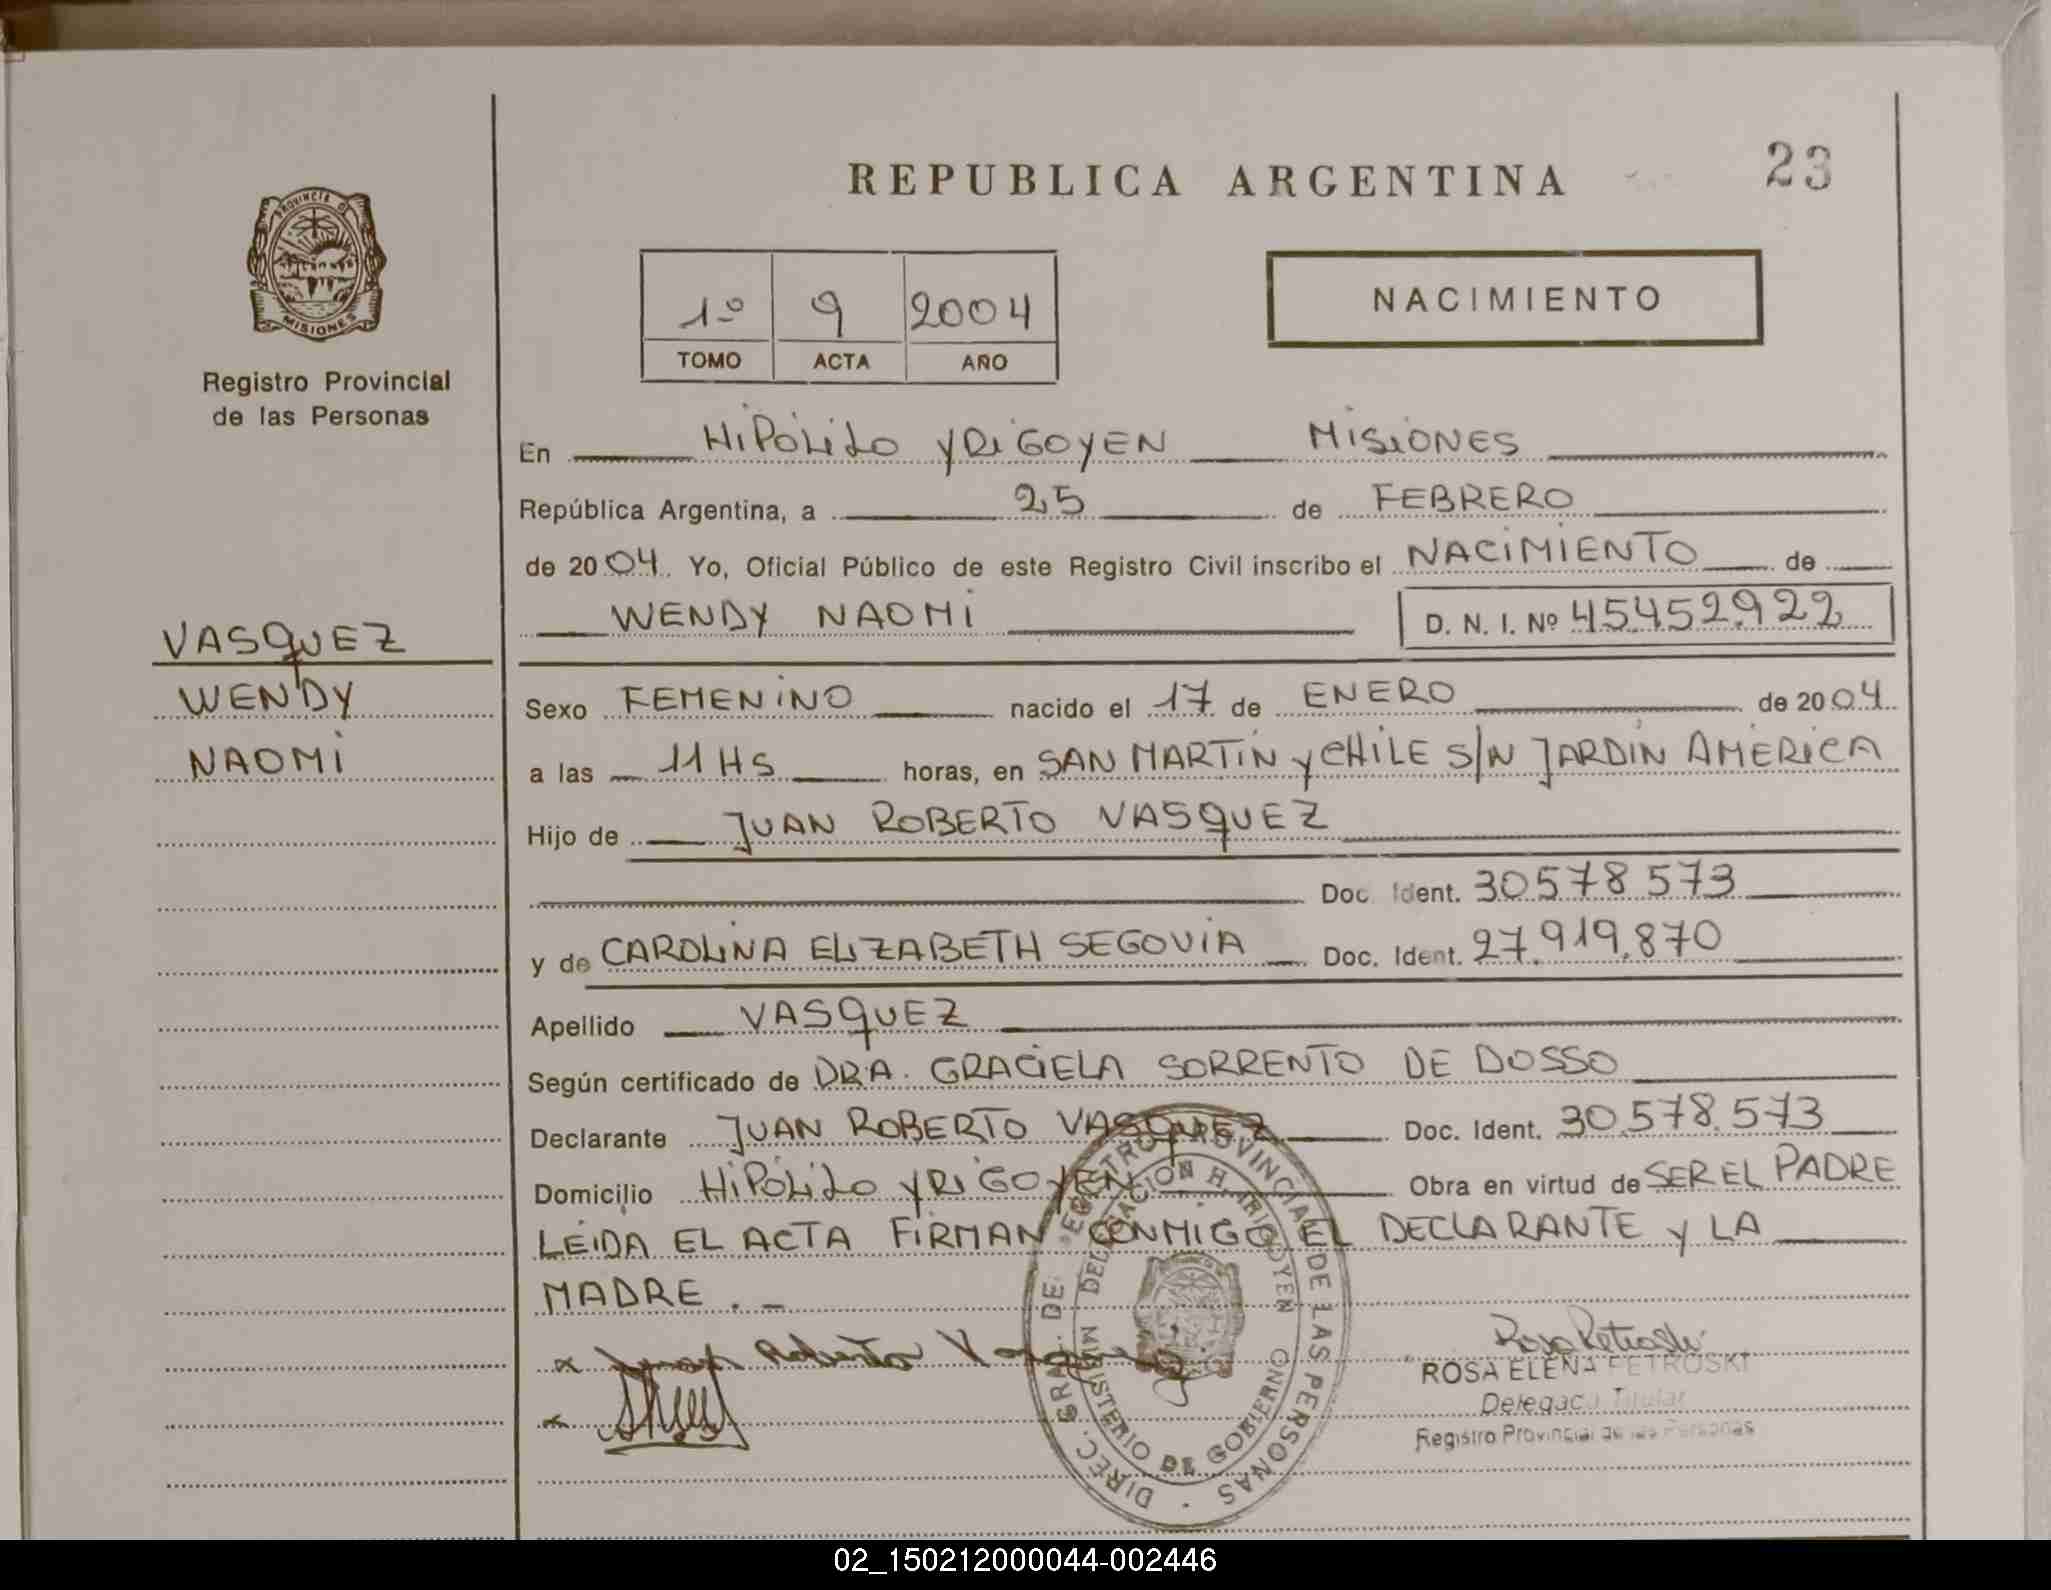 REPUBLICA ARGENTINA
23
PROVINCIA DE
MISIONES
Registro Provincial
de las Personas
1º 9 2004
TOMO ACTA AÑO
NACIMIENTO
En HIPÓLITO YRIGOYEN MISIONES
República Argentina, a 25 de FEBRERO
de 2004. Yo, Oficial Público de este Registro Civil inscribo el NACIMIENTO de
WENDY NAOMI D. N. I. Nº 45.452.922
VASQUEZ
WENDY
NAOMI
Sexo FEMENINO nacido el 17 de ENERO de 2004.
a las 11 HS horas, en SAN MARTIN y CHILE S/N JARDÍN AMÉRICA
Hijo de JUAN ROBERTO VASQUEZ
Doc. Ident. 30.578.573
y de CAROLINA ELIZABETH SEGOVIA Doc. Ident. 27.919.870
Apellido VASQUEZ
Según certificado de DRA. GRACIELA SORRENTO DE DOSSO
Declarante JUAN ROBERTO VASQUEZ Doc. Ident. 30.578.573
Domicilio HIPÓLITO YRIGOYEN Obra en virtud de SER EL PADRE
LEIDA EL ACTA FIRMAN CONMIGO EL DECLARANTE y LA
MADRE . _
x Juan Roberto Vasquez
x
Rosa Petroski
ROSA ELENA PETROSKI
Delegada Titular
Registro Provincial de las Personas
DIREC. GRAL. DE REGISTRO PROVINCIAL DE LAS PERSONAS
MINISTERIO DE GOBIERNO
DELEGACION H. IRIGOYEN
02_150212000044-002446